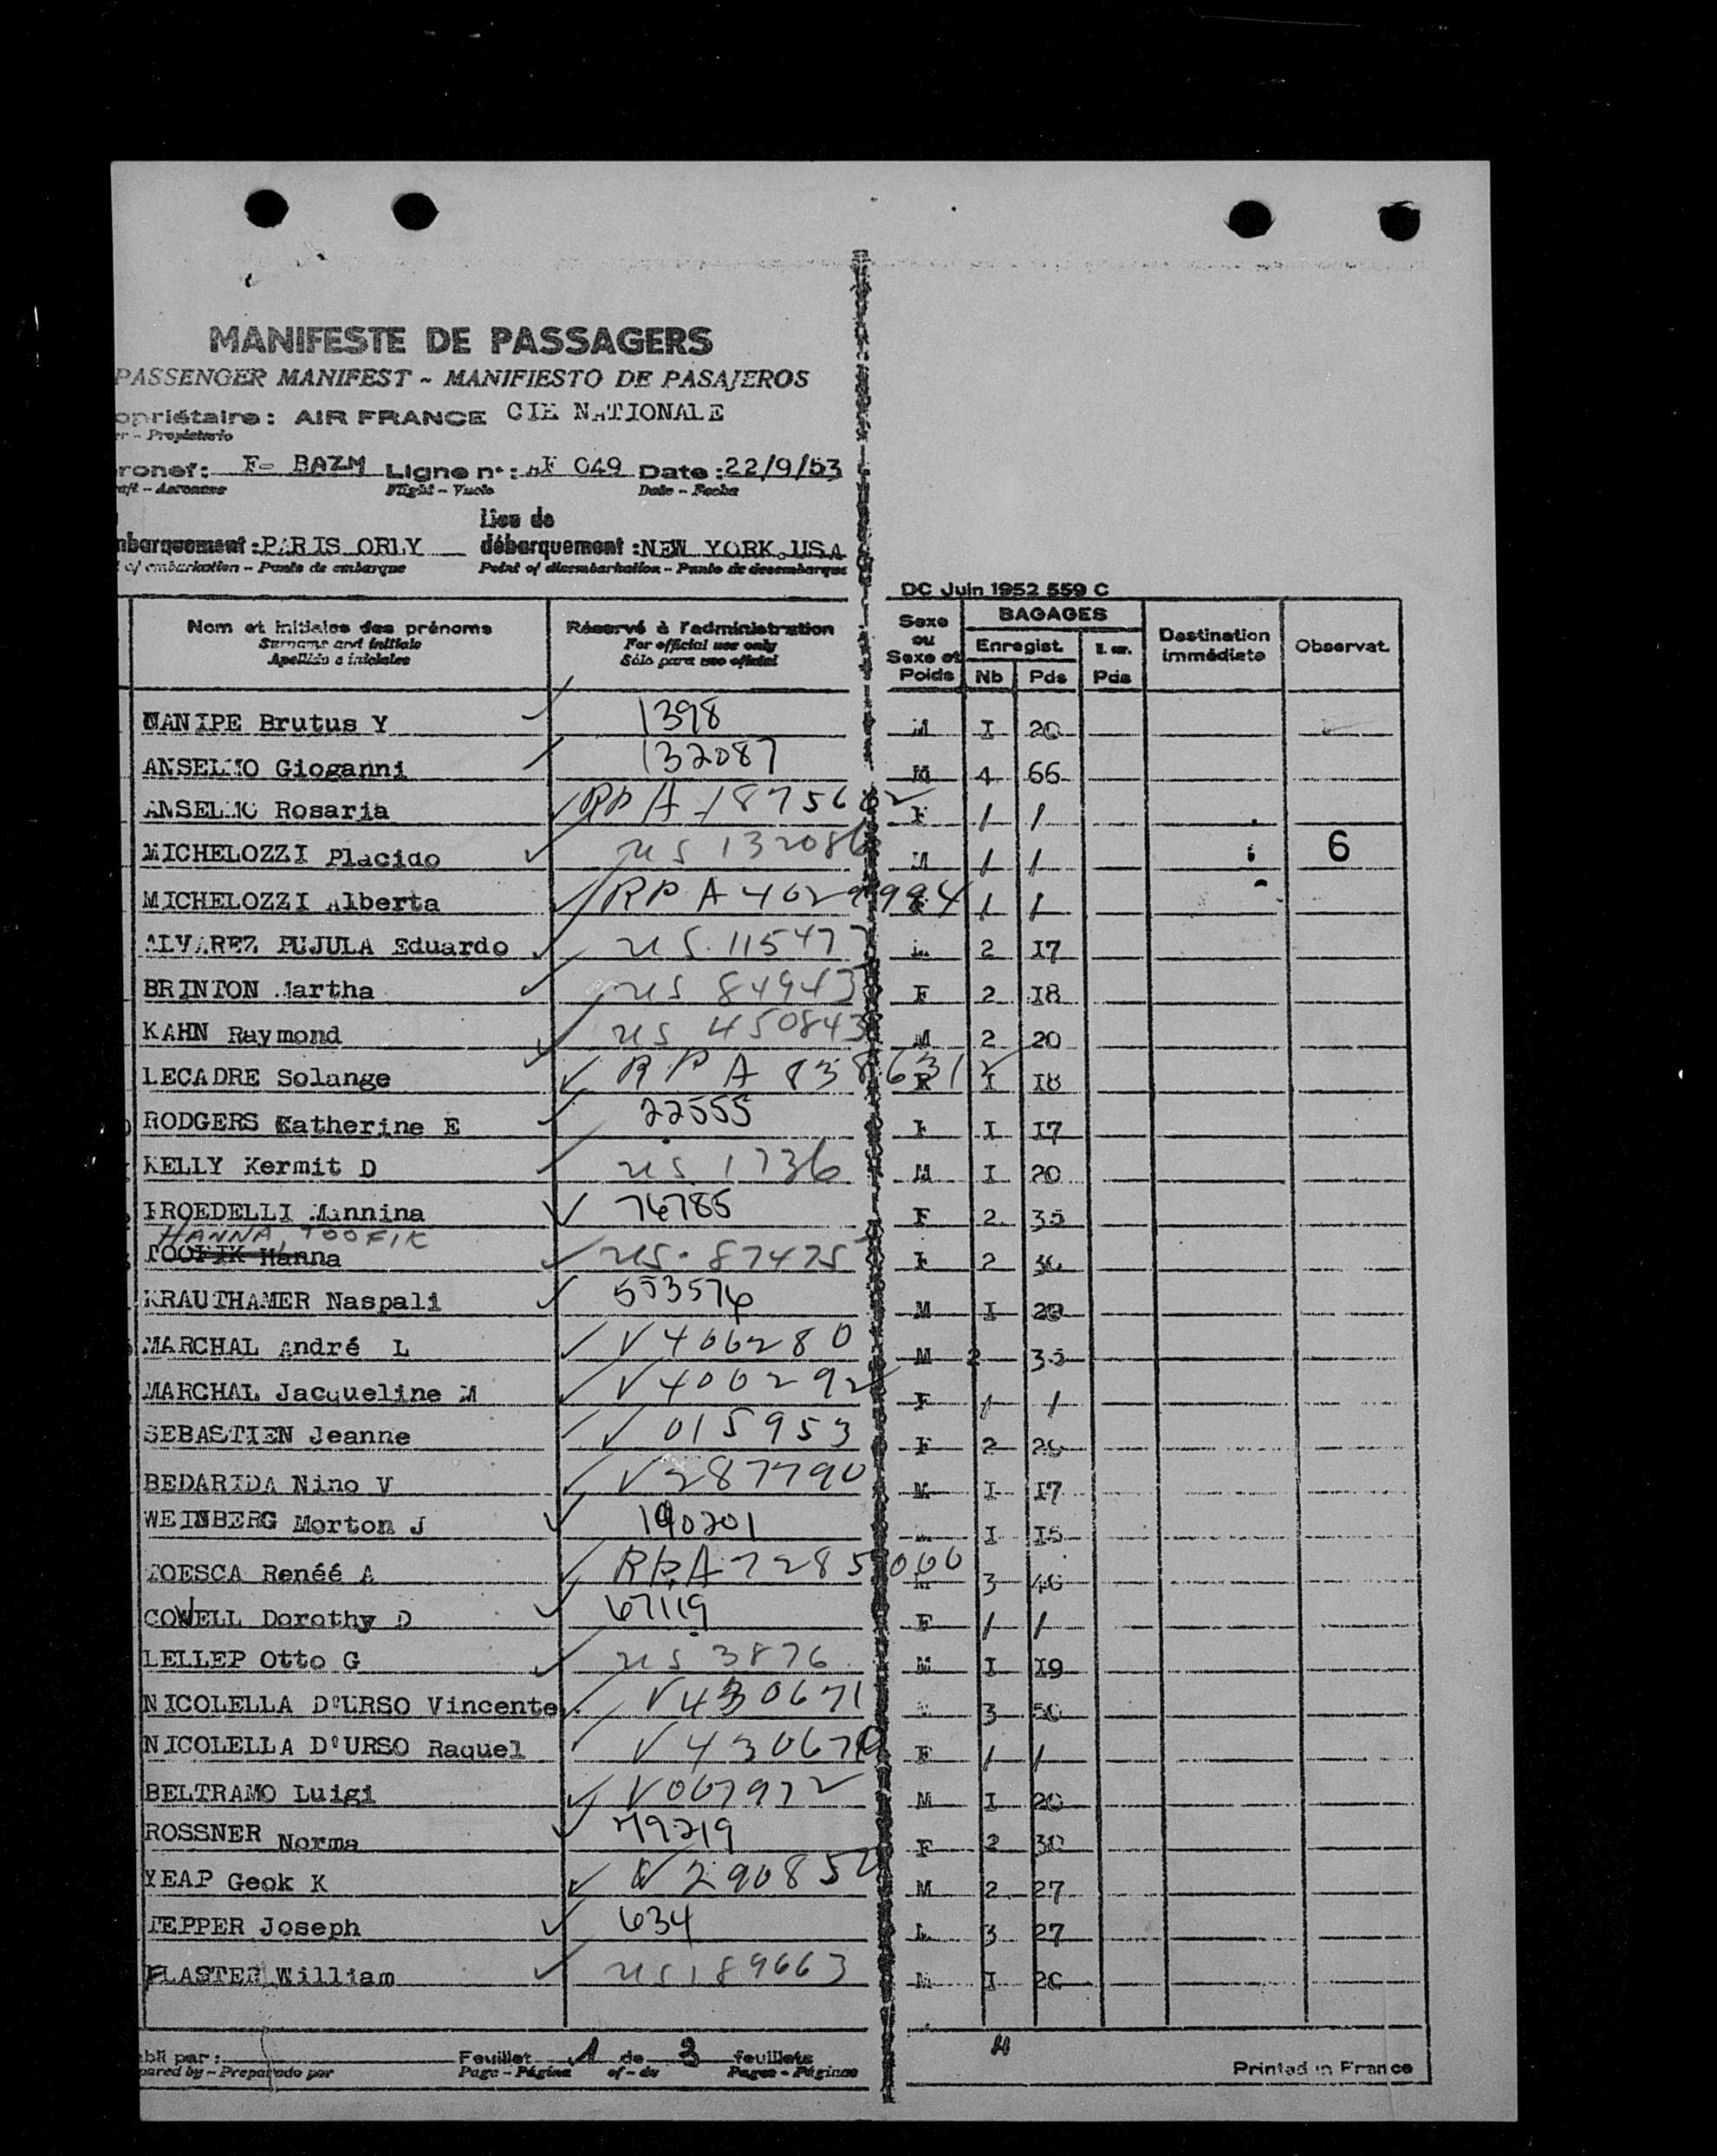 MANIFESTE DE PASSAGERS
PASSENGER MANIFEST - MANIFIESTO DE PASAJEROS
opriétaire: AIR FRANCE CIE NATIONALE
er - Propietario
ronef: F- BAZM Ligne n°: AF 049 Date: 22/9/53
aft - Aeronave Flight - Vuelo Date - Fecha
Lieu de
mbarquement: PARIS ORLY débarquement: NEW YORK USA
of embarkation - Punto de embarque Point of disembarkation - Punto de desembarque
DC Juin 1952 559 C
Nom et initiales des prénoms Réservé à l'administration Sexe ou Sexe et Poids BAGAGES Enregist. Nb Pds Pds Destination immédiate Observat.
Surname and initials For official use only
Apellido e iniciales Sólo para uso oficial
NANIPE Brutus Y 1398 M I 20
ANSELMO Gioganni 132087 M 4 66
ANSELMO Rosaria RPA 1875662 F / /
MICHELOZZI Placido US 132086 M / / 6
MICHELOZZI Alberta RPA 4029984 / /
ALVAREZ PUJULA Eduardo US 115477 2 I7
BRINTON Martha US 84943 F 2 I8
KAHN Raymond US 450843 M 2 20
LECADRE Solange RPA 838631 I I8
RODGERS Katherine E 22555 F I I7
KELLY Kermit D US 1736 M I 20
Mannina 76785 F 2 35
HANNA, TOOFIK
TOOFIK Hanna US 87475 F 2 30
KRAUTHAMER Naspali 553576 M I 20
MARCHAL André L V 406280 M 2 35
MARCHAL Jacqueline M V 400292 F / /
SEBASTIEN Jeanne V 015953 F 2 26
BEDARIDA Nino V V 287790 M I I7
WEINBERG Morton J 190201 I I5
TOESCA Renéé A RPA 7285000 3 40
COWELL Dorothy D 67119 F / /
LELLEP Otto G US 3876 M I I9
NICOLELLA D'URSO Vincente V 430671 3 50
NICOLELLA D'URSO Raquel V 430670 F / /
BELTRAMO Luigi V 067972 M I 20
ROSSNER Norma 79219 F 2 30
YEAP Geok K V 290852 M 2 27
TEPPER Joseph 634 3 27
PLASTER William US 189663 M I 20
bli par: Feuillet 1 de 3 feuillets
pared by - Preparado por Page - Página of - de Pages - Páginas
Printed in France